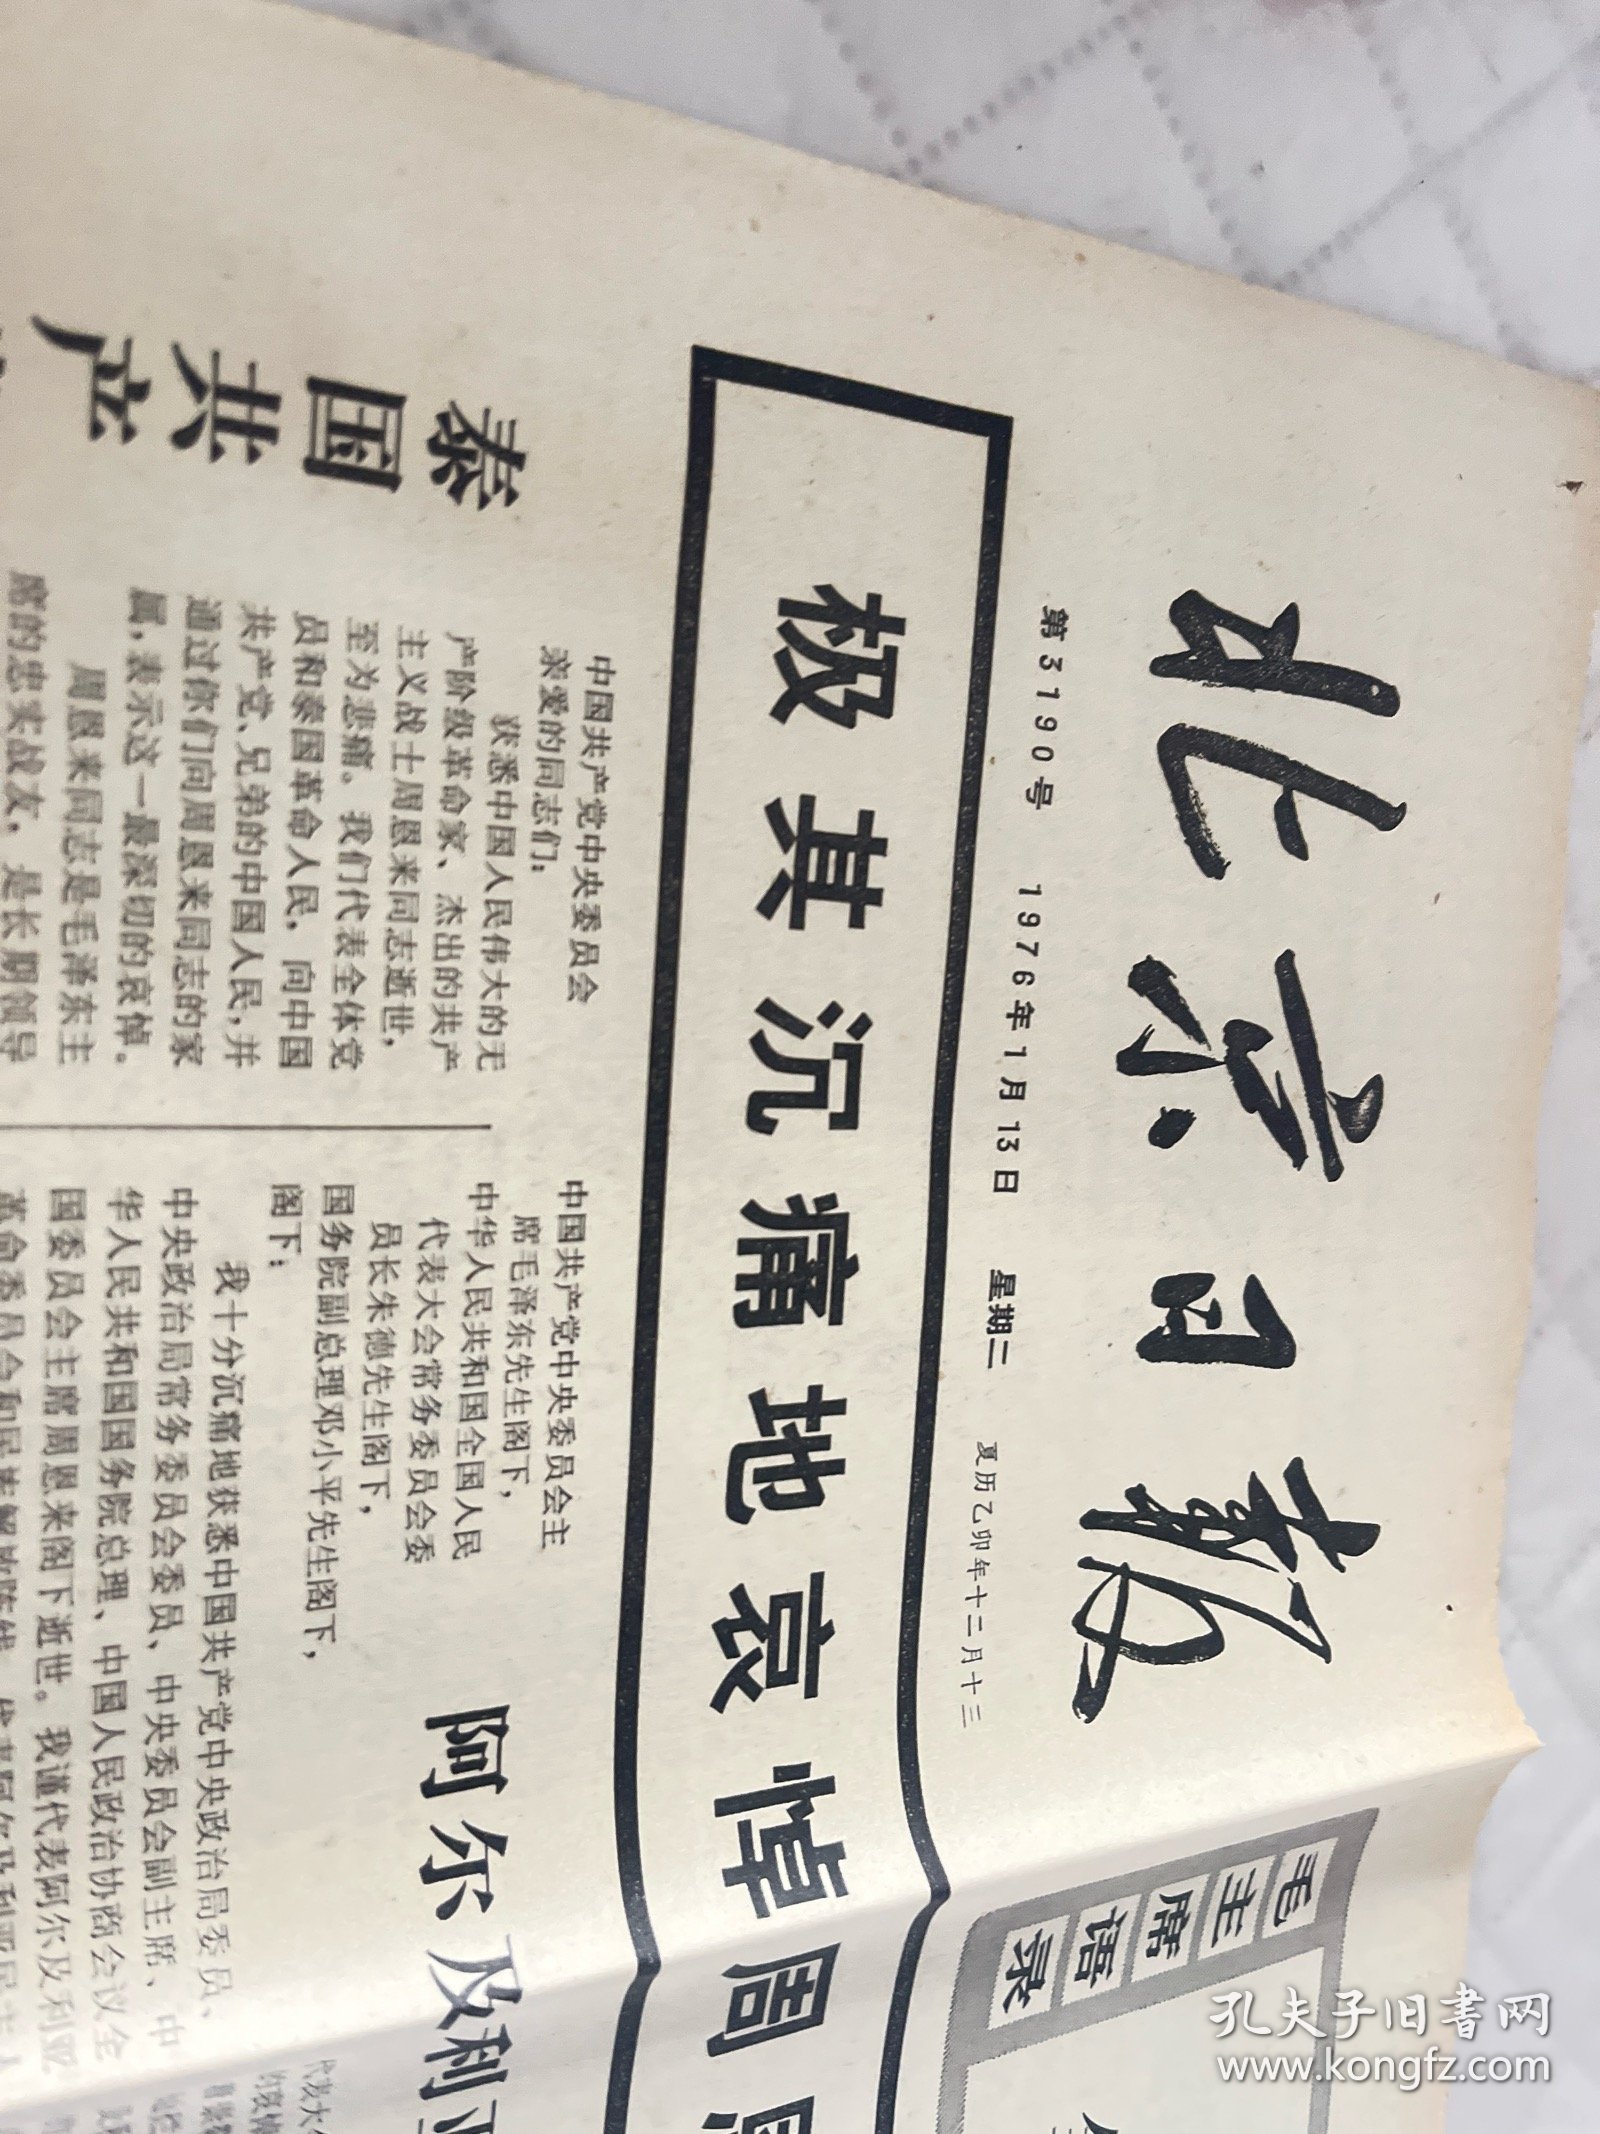 北京日報
第3190号 1976年1月13日 星期二 夏历乙卯年十二月十三
毛主席语录
极其沉痛地哀悼周恩
泰国共产
中国共产党中央委员会
亲爱的同志们：
获悉中国人民伟大的无
产阶级革命家、杰出的共产
主义战士周恩来同志逝世，
至为悲痛。我们代表全体党
员和泰国革命人民，向中国
共产党、兄弟的中国人民，并
通过你们向周恩来同志的家
属，表示这一最深切的哀悼。
周恩来同志是毛泽东主
席的忠实战友，是长期领导
中国共产党中央委员会主
席毛泽东先生阁下，
中华人民共和国全国人民
代表大会常务委员会委
员长朱德先生阁下，
国务院副总理邓小平先生阁下，
阁下：
我十分沉痛地获悉中国共产党中央政治局委员、
中央政治局常务委员会委员、中央委员会副主席、中
华人民共和国国务院总理、中国人民政治协商会议全
国委员会主席周恩来阁下逝世。我谨代表阿尔及利亚
阿尔及利亚
孔夫子旧書网
www.kongfz.com